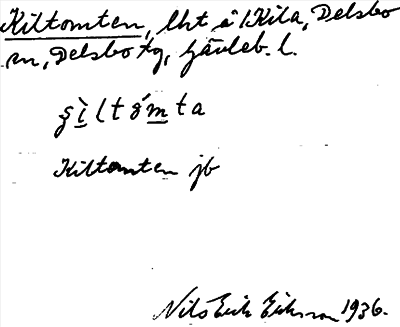 Kiltomten, lht å Kila, Delsbo
sn, Delsbo tg, Gävleb. l.
Kiltomten jb
Nils Erik Eriksson 1936.